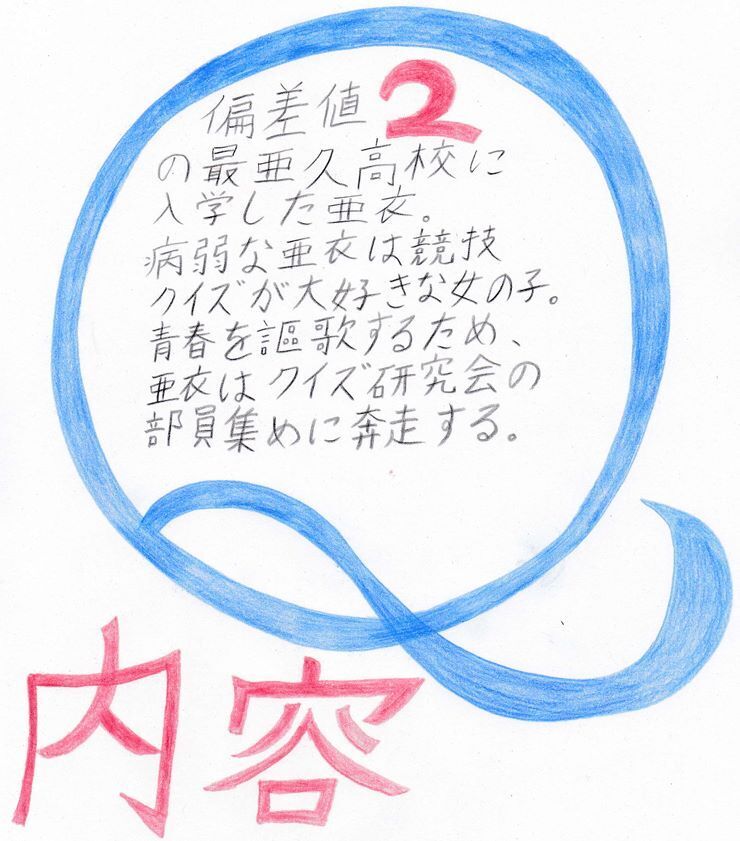 偏差値2
の最亜久高校に
入学した亜衣。
病弱な亜衣は競技
クイズが大好きな女の子。
青春を謳歌するため、
亜衣はクイズ研究会の
部員集めに奔走する。
Q
内容